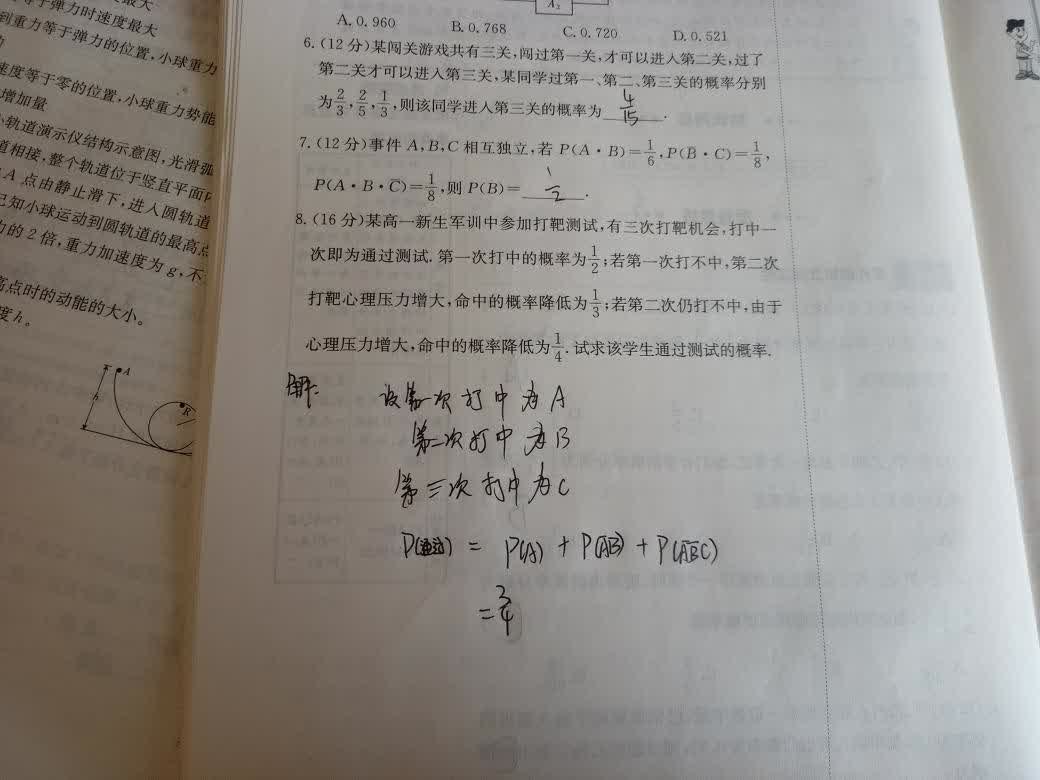 最大
等于弹力时速度最大
到重力等于弹力的位置,小球重力
速度等于零的位置,小球重力势能
增加量
轨道演示仪结构示意图,光滑弧
道相接,整个轨道位于竖直平面
A 点由静止滑下,进入圆轨道
已知小球运动到圆轨道的最高点
力的 2 倍,重力加速度为 g,不
高点时的动能的大小。
度 h。
A
h
R
A. 0.960 B. 0.768 C. 0.720 D. 0.521
6. (12 分)某闯关游戏共有三关,闯过第一关,才可以进入第二关,过了
第二关才可以进入第三关,某同学过第一、第二、第三关的概率分别
为 2/3, 2/5, 1/3, 则该同学进入第三关的概率为 4/15 .
7. (12 分)事件 A,B,C 相互独立,若 P(A·B)=1/6, P(B̄·C)=1/8,
P(A·B·C̄)=1/8, 则 P(B)= 1/2 .
8. (16 分)某高一新生军训中参加打靶测试,有三次打靶机会,打中一
次即为通过测试. 第一次打中的概率为1/2;若第一次打不中,第二次
打靶心理压力增大,命中的概率降低为1/3;若第二次仍打不中,由于
心理压力增大,命中的概率降低为1/4. 试求该学生通过测试的概率.
解: 设第一次打中为 A
第二次打中为 B
第三次打中为 C
P(通过) = P(A) + P(ĀB) + P(ĀB̄C)
= 3/4